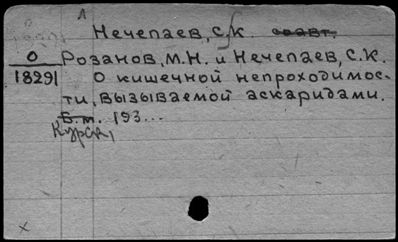 Нечепаев, С.К. соавт.
О
18291
Розанов, М.Н. и Нечепаев, С.К.
О кишечной непроходимос-
ти, вызываемой аскаридами.
Б.м. 193...
Курск,